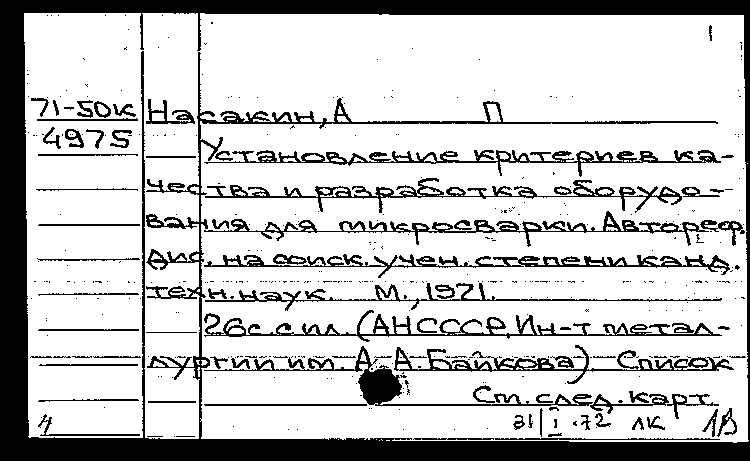 1
71-50к Насакин, А П
4975 Установление критериев ка-
чества и разработка оборудо-
вания для микросварки. Автореф.
дис. на соиск. учен. степени канд.
техн. наук. М., 1971.
26с. с ил. (АН СССР. Ин-т метал-
лургии им. А. А. Байкова). Список
См. след. карт.
4 31/I-72 лк ЛВ